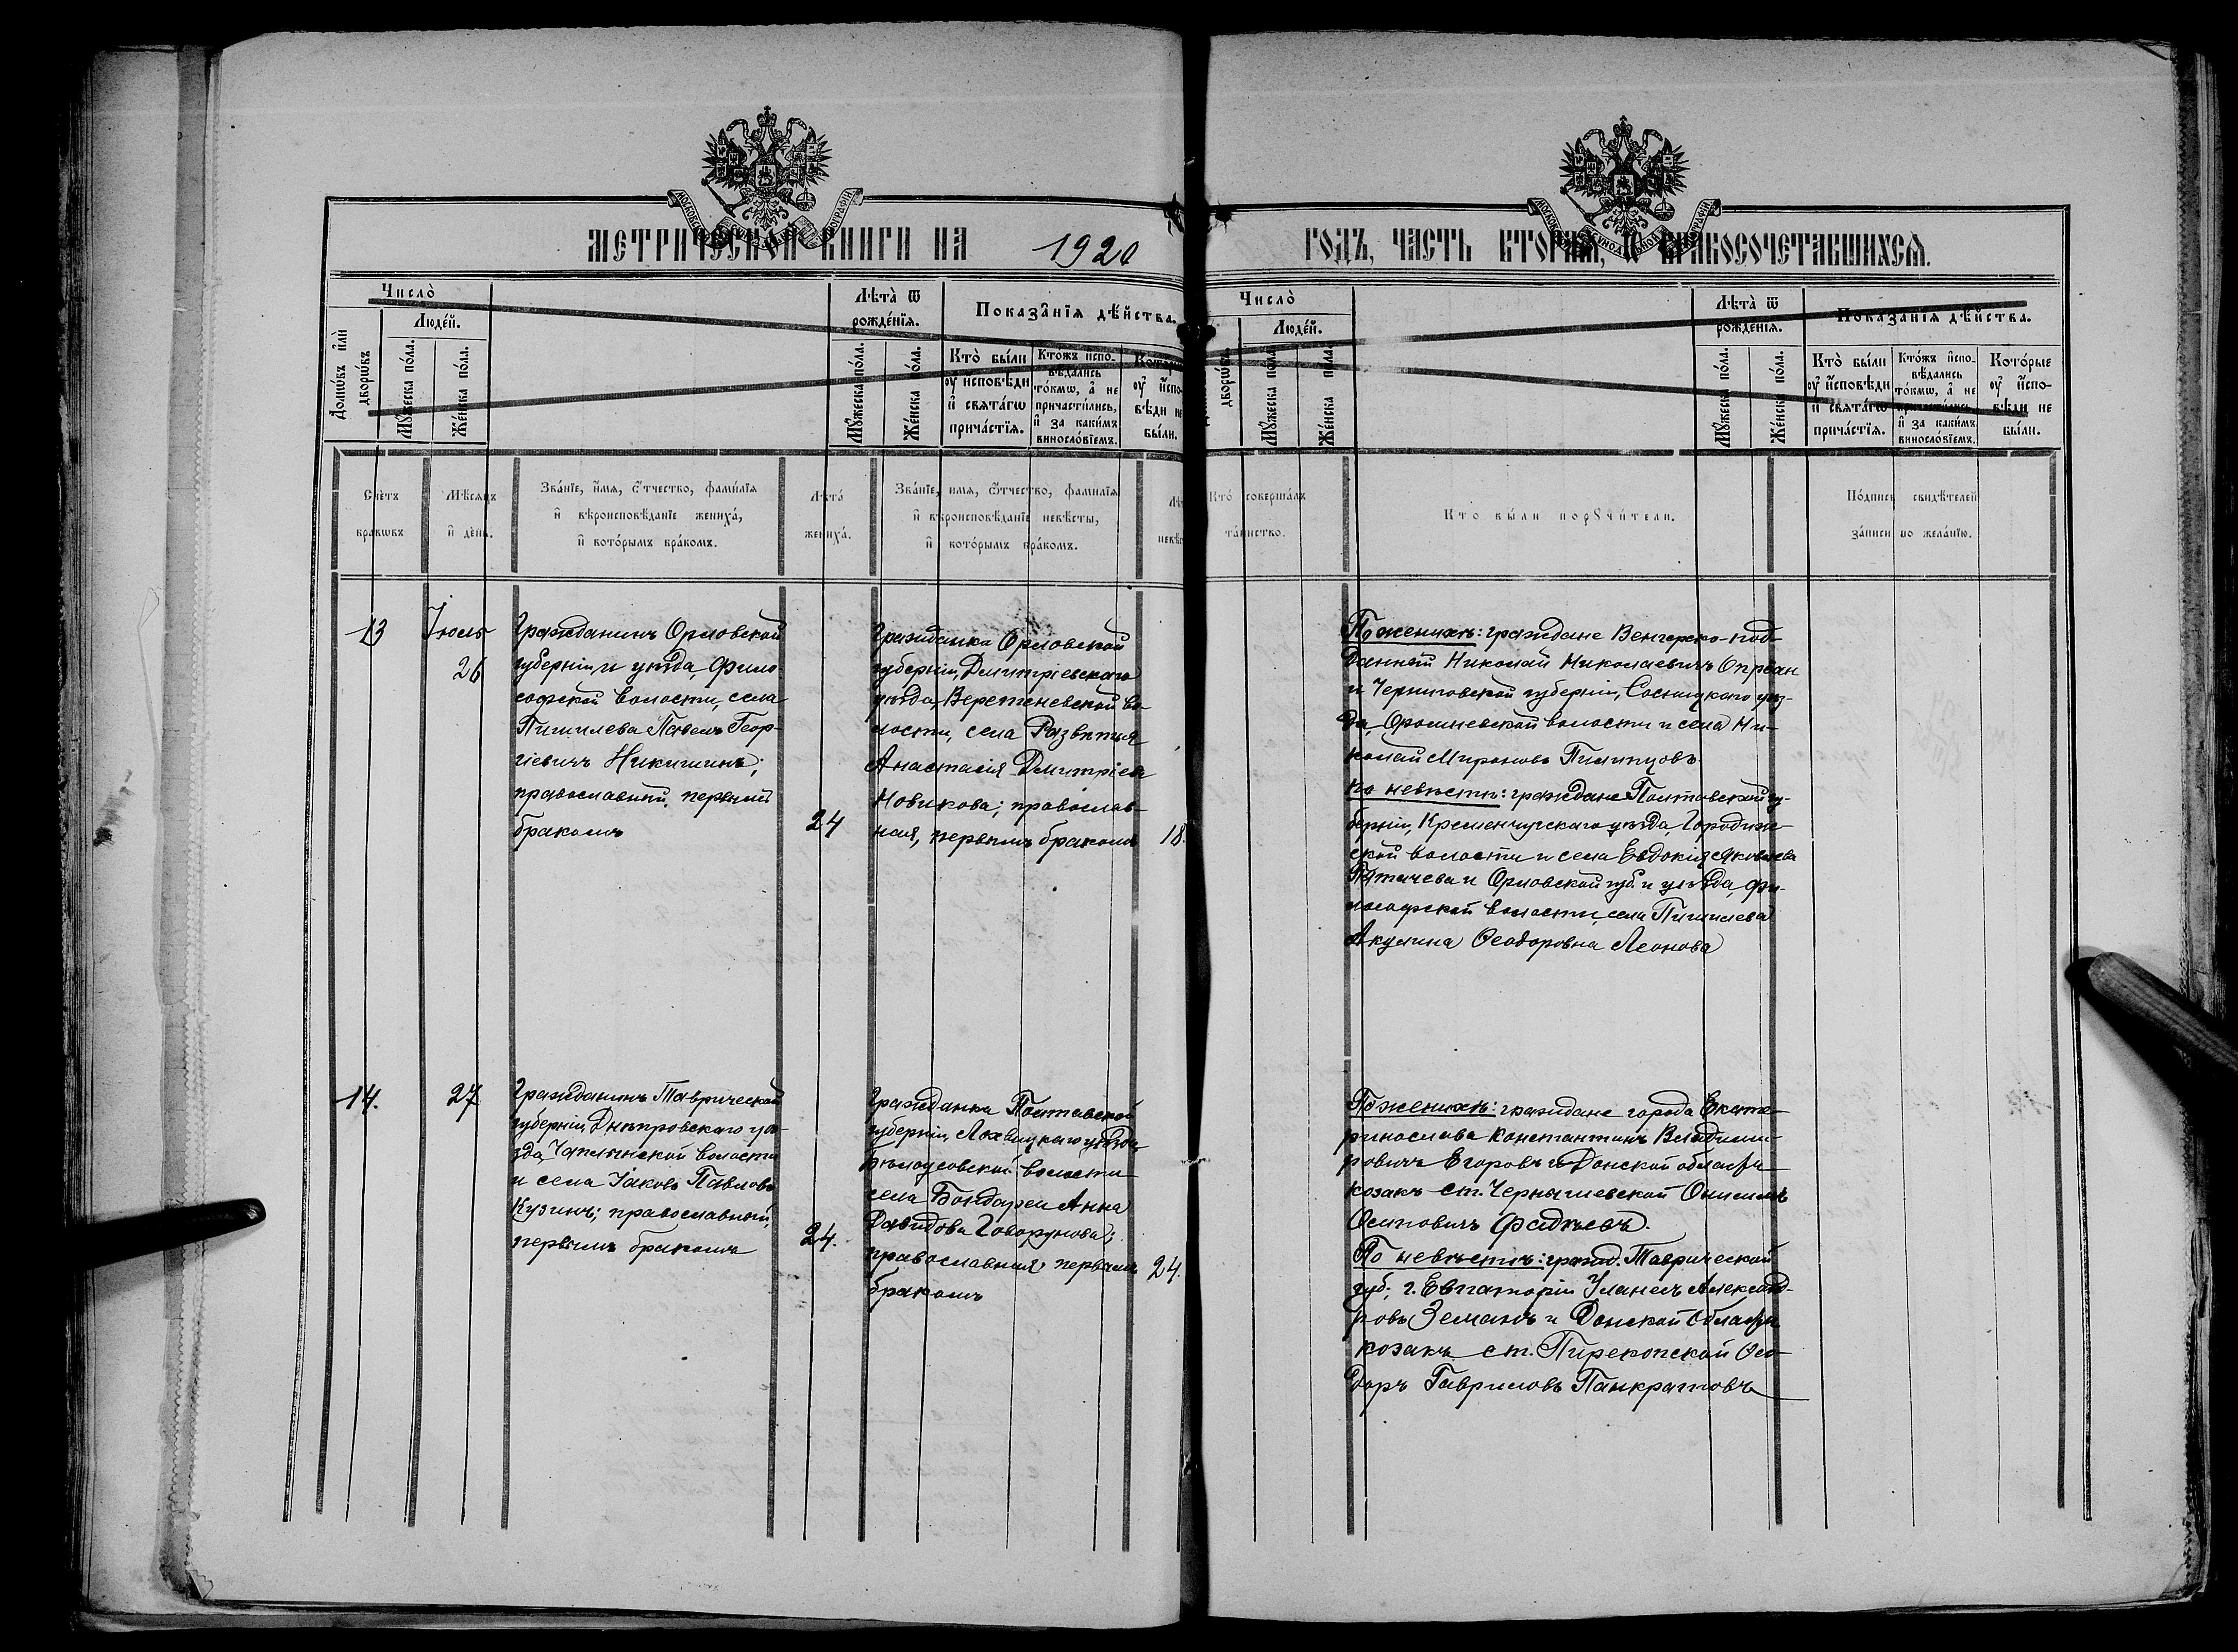 МЕТРИЧЕСКОЙ КНИГИ НА 1920 ГОДЪ, ЧАСТЬ ВТОРАЯ, О БРАКОСОЧЕТАВШИХСЯ.
Число̀
Домѡ́въ и҆лѝ дворѡ́въ
Люде́й.
Мꙋ́жеска по́ла.
Же́нска по́ла.
Лѣта̀ ѿ рожде́нїѧ.
Мꙋ́жеска по́ла.
Же́нска по́ла.
Показа̂нїѧ дѣ́йства.
Кто̀ бы́ли
ᲂу҆ и҆сповѣди
и҆ свѧта́гѡ
прича́стїѧ.
Кто́жъ и҆спо-
вѣдались
то́кмѡ, а҆ не
причасти́лись,
и҆ за каки́мъ
виносло́вїемъ.
ᲂу҆ и҆спо-
вѣди не
бы́ли.
Число̀
дворѡ́въ
Люде́й.
Мꙋ́жеска по́ла.
Же́нска по́ла.
Лѣта̀ ѿ
рожде́нїѧ.
Мꙋ́жеска по́ла.
Же́нска по́ла.
Показа̂нїѧ дѣ́йства.
Кто̀ бы́ли
ᲂу҆ и҆сповѣди
и҆ свѧта́гѡ
прича́стїѧ.
Кто́жъ и҆спо-
вѣдались
то́кмѡ, а҆ не
причасти́лись,
и҆ за каки́мъ
виносло́вїемъ.
Кото́рые
ᲂу҆ и҆спо-
вѣди не
бы́ли.
Сче́тъ
бра́кѡвъ
Мѣ́сѧцъ
и҆ де́нь.
Зва́нїе, и҆́мѧ, ѻ҆́тчество, фами́лїѧ
и҆ вѣроисповѣ́данїе жениха̀,
и҆ кото́рымъ бра́комъ.
Лѣта̀
жениха̀.
Зва́нїе, и҆́мѧ, ѻ҆́тчество, фами́лїѧ
и҆ вѣроисповѣ́данїе невѣ́сты,
и҆ кото́рымъ бра́комъ.
Кто̀ соверша́лъ
та́инство.
Кто бы́ли порꙋчи́тели.
По́дпись свидѣ́телей
за́писи по жела́нїю.
13
Іюль
26
Гражданинъ Орловской
губерніи и уѣзда, Фило-
софской волости, села
Пишилева Павелъ Геор-
гіевичъ Никишинъ;
православный, первымъ
бракомъ
24
Гражданка Орловской
губерніи, Дмитріевскаго
уѣзда, Веретеневской во-
лости, села Развѣтья
Анастасія Дмитріева
Новикова; православ-
ная, первымъ бракомъ
18.
По женихѣ: граждане Венгерско-под-
данный Николай Николаевичъ Опреан
и Черниговской губерніи, Сосницкаго уѣз-
да, волости и села Ни-
колай Мироновъ
По невѣстѣ: граждане Полтавской гу-
берніи, Кременчугскаго уѣзда, Городиж-
ской волости и села Евдокія Яковлева
и Орловской губ. и уѣзда, Фи-
лософской волости, села Пишилева
Акулина Ѳеодоровна Леонова
14.
27
Гражданинъ Таврической
губерніи, Днѣпровскаго уѣз-
да, Чаплынской волости
и села Іаковъ Павловъ
Кузинъ; православный,
первымъ бракомъ
24.
Гражданка Полтавской
губерніи, Лохвицкаго уѣзда,
Бѣлоусовской волости
села Бондари Анна
Давидова Говорунова;
православная, первымъ
бракомъ
24.
По женихѣ: граждане города Екате-
ринослава Константинъ Владими-
ровичъ Егоровъ и Донской области
козакъ ст. Чернышевской Онисимъ
Осиповичъ Фадѣевъ.
По невѣстѣ: гражд. Таврической
губ., г. Евпаторіи Александ-
ровъ Земанъ и Донской области
козакъ ст. Пирекопской Ѳео-
доръ Гавриловъ Панкратовъ